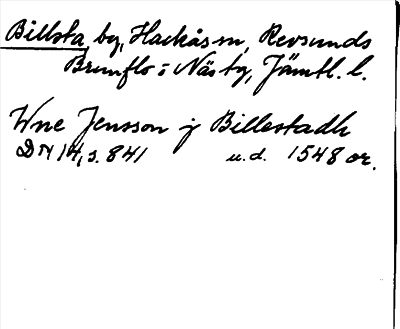 Billsta by, Hackås sn, Revsunds
Brunflo o Näs tg, Jämtl. l.
Une Jensson j Billestadh
DN 14, s. 841 u.d. 1548 or.